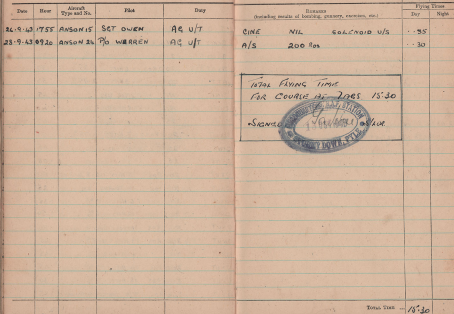 Date Hour Aircraft Type and No. Pilot Duty Remarks (including results of bombing, gunnery, exercises, etc.) Flying Times Day Night
26.9.43 1755 ANSON 15 SGT OWEN AG U/T CINE NIL SOLENOID U/S ·35
28.9.43 0920 ANSON P/O WARREN AG U/T A/S 200 RDS ·30
TOTAL FLYING TIME
FOR COURSE AT 7 AGS 15·30
SIGNED
STORMY DOWN, PYLE
TOTAL TIME .. 15·30